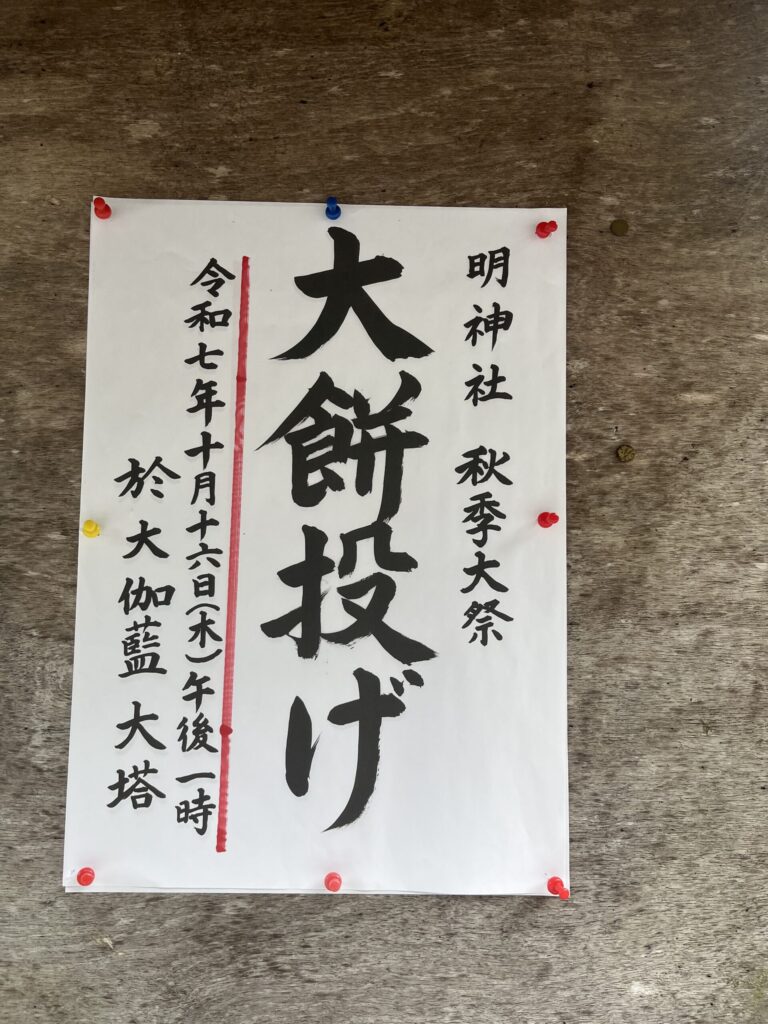 明神社 秋季大祭
大餅投げ
令和七年十月十六日(木)午後一時
於大伽藍大塔